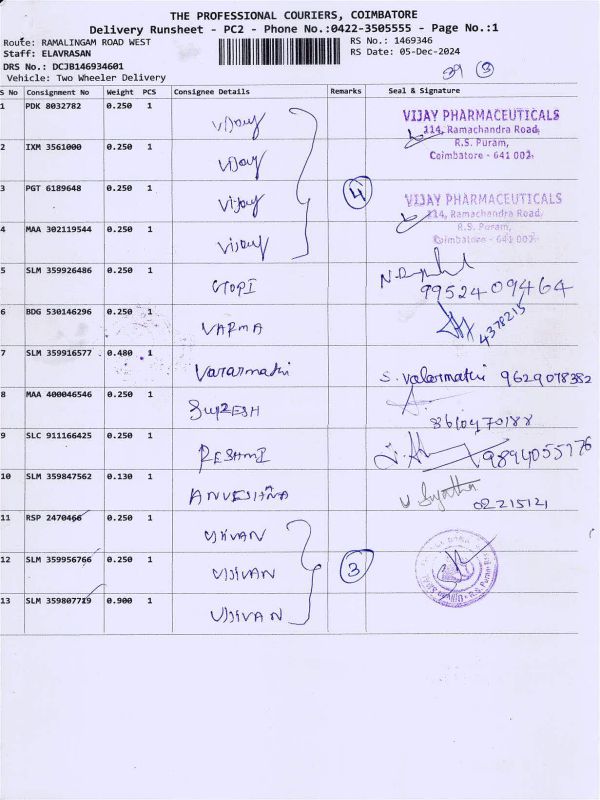 THE PROFESSIONAL COURIERS, COIMBATORE
Delivery Runsheet - PC2 - Phone No.:0422-3505555 - Page No.:1
Route: RAMALINGAM ROAD WEST RS No.: 1469346
Staff: ELAVRASAN RS Date: 05-Dec-2024
DRS No.: DCJB146934601
Vehicle: Two Wheeler Delivery 39 3
S No Consignment No Weight PCS Consignee Details Remarks Seal & Signature
1 PDK 8032782 0.250 1 Vijay
VIJAY PHARMACEUTICALS
114, Ramachandra Road,
R.S. Puram,
Coimbatore - 641 002.
2 IXM 3561000 0.250 1 Vijay
3 PGT 6189648 0.250 1 Vijay 4
VIJAY PHARMACEUTICALS
114, Ramachandra Road,
R.S. Puram,
Coimbatore - 641 002.
4 MAA 302119544 0.250 1 Vijay
5 SLM 359926486 0.250 1 GOPI 9952409464
6 BDG 530146296 0.250 1 VARMA 4378215
7 SLM 359916577 0.480 1 Vararmathi S. Valarmathi 9629078382
8 MAA 400046546 0.250 1 SURESH 8610470188
9 SLC 911166425 0.250 1 RESHMI 9894055176
10 SLM 359847562 0.130 1 ANVESHNA 02215121
11 RSP 2470466 0.250 1 UJIVAN
12 SLM 359956766 0.250 1 UJJIVAN 3
13 SLM 359807719 0.900 1 UJJIVAN